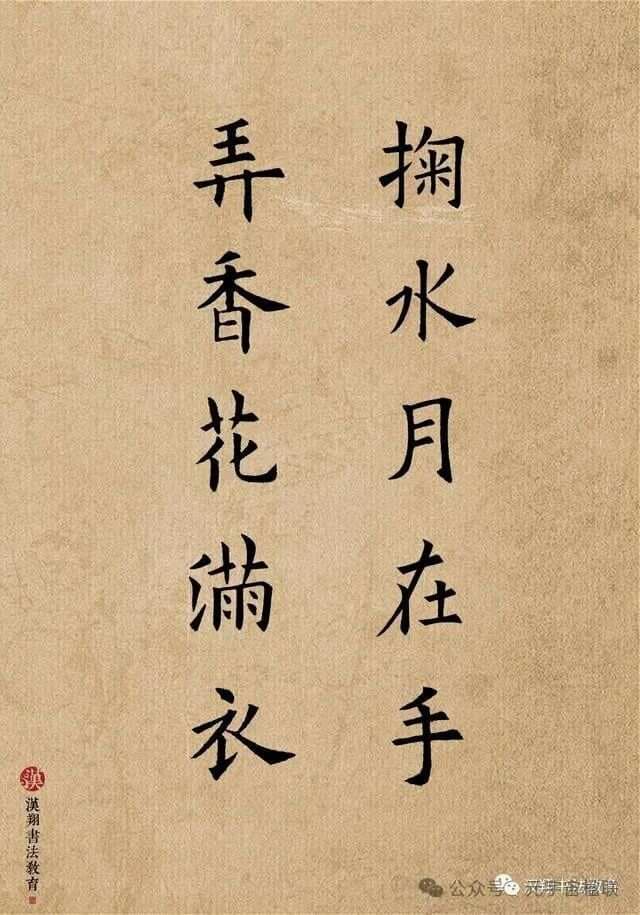 掬水月在手
弄香花滿衣
漢翔書法教育
公众号
汉翔书法教育